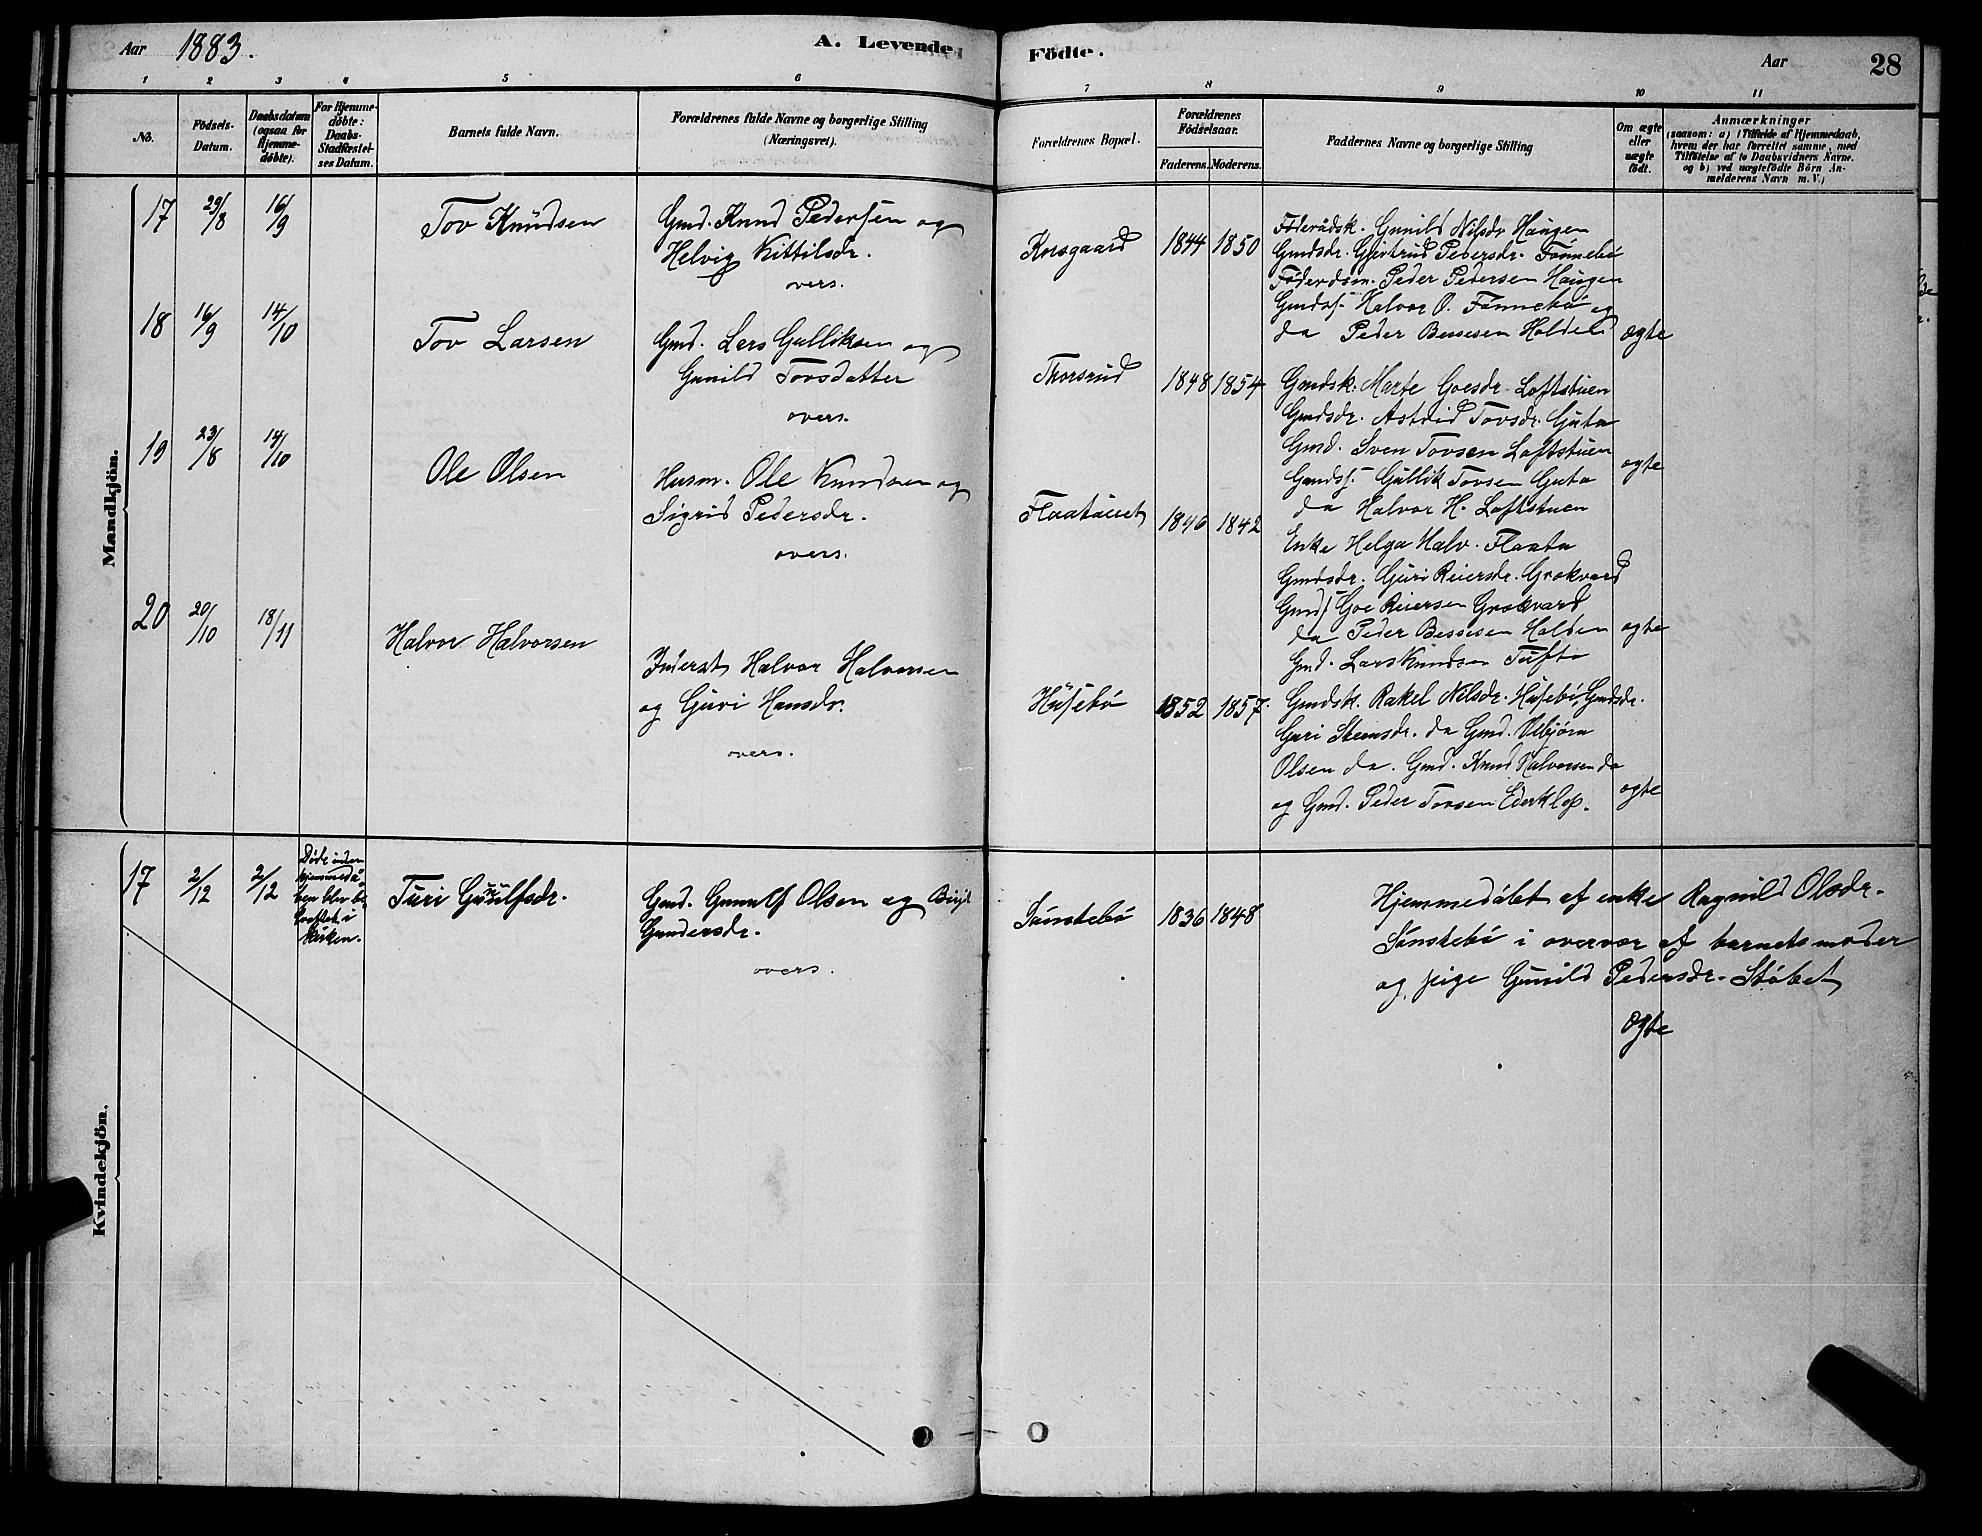 Aar 1883.
A. Levende Födte.
Aar
28
1 2 3 4 5 6 7 8 9 10 11
No.
Födsels-
Datum.
Daabsdatum
(ogsaa for
Hjemme-
döbte).
For Hjemme-
döbte:
Daabs-
Stadfæstel-
ses Datum.
Barnets fulde Navn.
Forældrenes fulde Navne og borgerlige Stilling
(Næringsvei).
Forældrenes Bopæl.
Forældrenes
Födselsaar.
Faderens. Moderens.
Faddernes Navne og borgerlige Stilling
Om ægte
eller
uægte
födt.
Anmærkninger
(saasom: a) i Tilfælde af Hjemmedaab,
hvem der har forrettet samme, med
Tilföielse af to Daabsvidners Navne.
og b) ved uægtefödte Börn An-
melderens Navn m. V.)
Mandkjön.
17 29/8 16/9 Tov Knudsen
Gmd. Knud Pedersen og
Helvig Kittilsdr.
overs.
Korsgaard 1844 1850
Föderådsk. Gunild Nilsdr Haugen
Gmdsdr. Gjertrud Pedersdr. Tönnebö
Föderdsm. Peder Pedersen Haugen
Gmdss. Halvor O. Tönnebö og
da Peder Bessesen Holden
ægte
18 16/9 14/10 Tov Larsen
Gmd. Lars Gulliksen og
Gunild Tovsdatter
overs.
Thorsrud 1848 1854
Gmdsk. Marte Goesdr. Loftstuen
Gmdsdr. Astrid Tovsdr. Guta
Gmd. Sven Tovsen Loftstuen
Gmdss. Gullik Tovsen Guta
da Halvor H. Loftstuen
ægte
19 23/8 14/10 Ole Olsen
Husm. Ole Knudsen og
Sigrid Pedersdr.
overs.
Flaataeiet 1846 1842
Enke Helga Halv. Flaata
Gmdsdr. Guri Reiersdr. Grokvard
Gmdss Goe Reiersen Grokvard
da Peder Bessesen Holden
Gmd. Lars Knudsen Tufto
ægte
20 20/10 18/11 Halvor Halvorsen
Inderst Halvor Halvorsen
og Guri Hansdr.
overs.
Husebö 1852 1857.
Gmdsk. Rakel Nilsdr. Husebö, Gmdsdr.
Guri Steensdr. da Gmd. Vebjörn
Olsen da. Gmd. Knud Halvorsen do
og Gmd. Peder Tovsen Ederklep.
ægte
Kvindekjön.
17 2/12 2/12
Döde inden
hjemmedå-
ben blev be-
kræftet i
kirken.
Turi Gunulfsdr.
Gmd. Gunnulf Olsen og Birgit
Gundersdr.
overs.
Sönstebö 1836 1848
Hjemmedöbt af enke Ragnild Olsdr.
Sönstebö i overvær af barnets moder
og pige Gunild Pedersdr. Stöbet
ægte